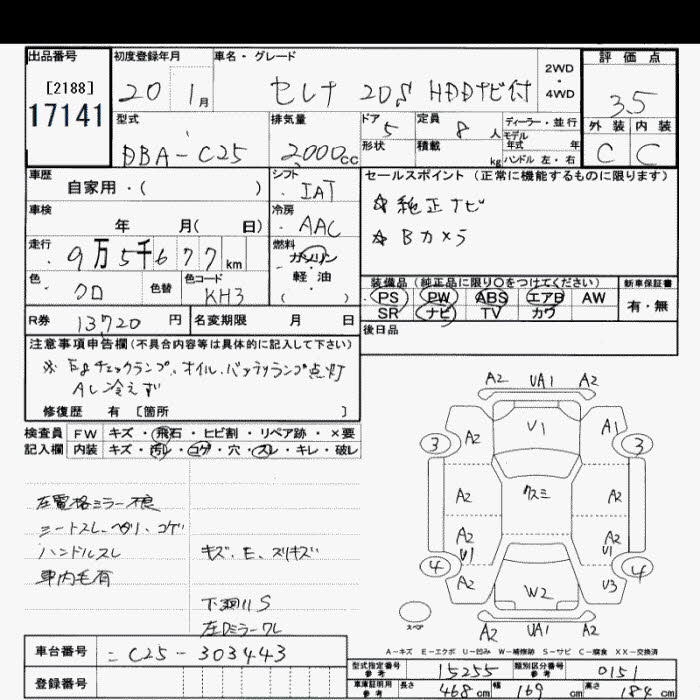 出品番号 初度登録年月 車名・グレード 2WD・4WD 評価点
[2188]
17141
20 1月 セレナ 20S HDDナビ付 3.5
型式 排気量 ドア 5 定員 8 人 ディーラー・並行 外装 内装
DBA-C25 2000cc 形状 積載 kg モデル年式 年 C C
ハンドル 左・右
車歴 シフト セールスポイント (正常に機能するものに限ります)
自家用・( ) IAT
☆ 純正ナビ
車検 冷房
年 月( 日) AAC
☆ Bカメラ
走行 燃料
9万5千677km ガソリン・軽・油 ( )
色 色替 色コード 装備品 (純正品に限り○をつけてください) 新車保証書
クロ KH3 PS PW ABS エアB AW 有・無
SR ナビ TV カワ
R券 13720 円 名変期限 月 日 後日品
注意事項申告欄 (不具合内容等は具体的に記入して下さい)
※ Egチェックランプ、オイル、バッテリランプ点灯
ACL冷えず
修復歴 有 [箇所 ]
検査員 FW キズ・飛石・ヒビ割・リペア跡・×要
記入欄 内装 キズ・汚レ・コゲ・穴・スレ・キレ・破レ
左電格ミラー不良
シートスレ、ヘタリ、コゲ
ハンドルスレ キズ、E、スリキズ
車内毛有
下廻りS
左Dミラーワレ
A2 UA1 A2
A2 V1 A1
3 3
A2 クスミ A2
A2 A2
U1 U1
4 4
A2 W2 U3
スペア
A2 UA1 A2
A-キズ E-エクボ U-凹み W-補修跡 S-サビ C-腐食 XX-交換済
車台番号 C25-303443
登録番号
型式指定番号 参考 15255 類別区分番号 参考 0151
車庫証明用 参考 長さ 468 cm 幅 169 cm 高さ 184 cm